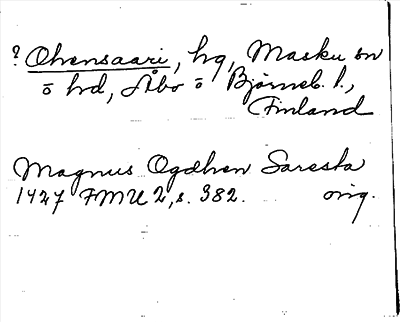 ? Ohensaari, hg, Masku sn
o hd, Åbo o Björneb. l.,
Finland
Magnus Ogdhen Saresta
1427 FMU 2, s. 382. orig.